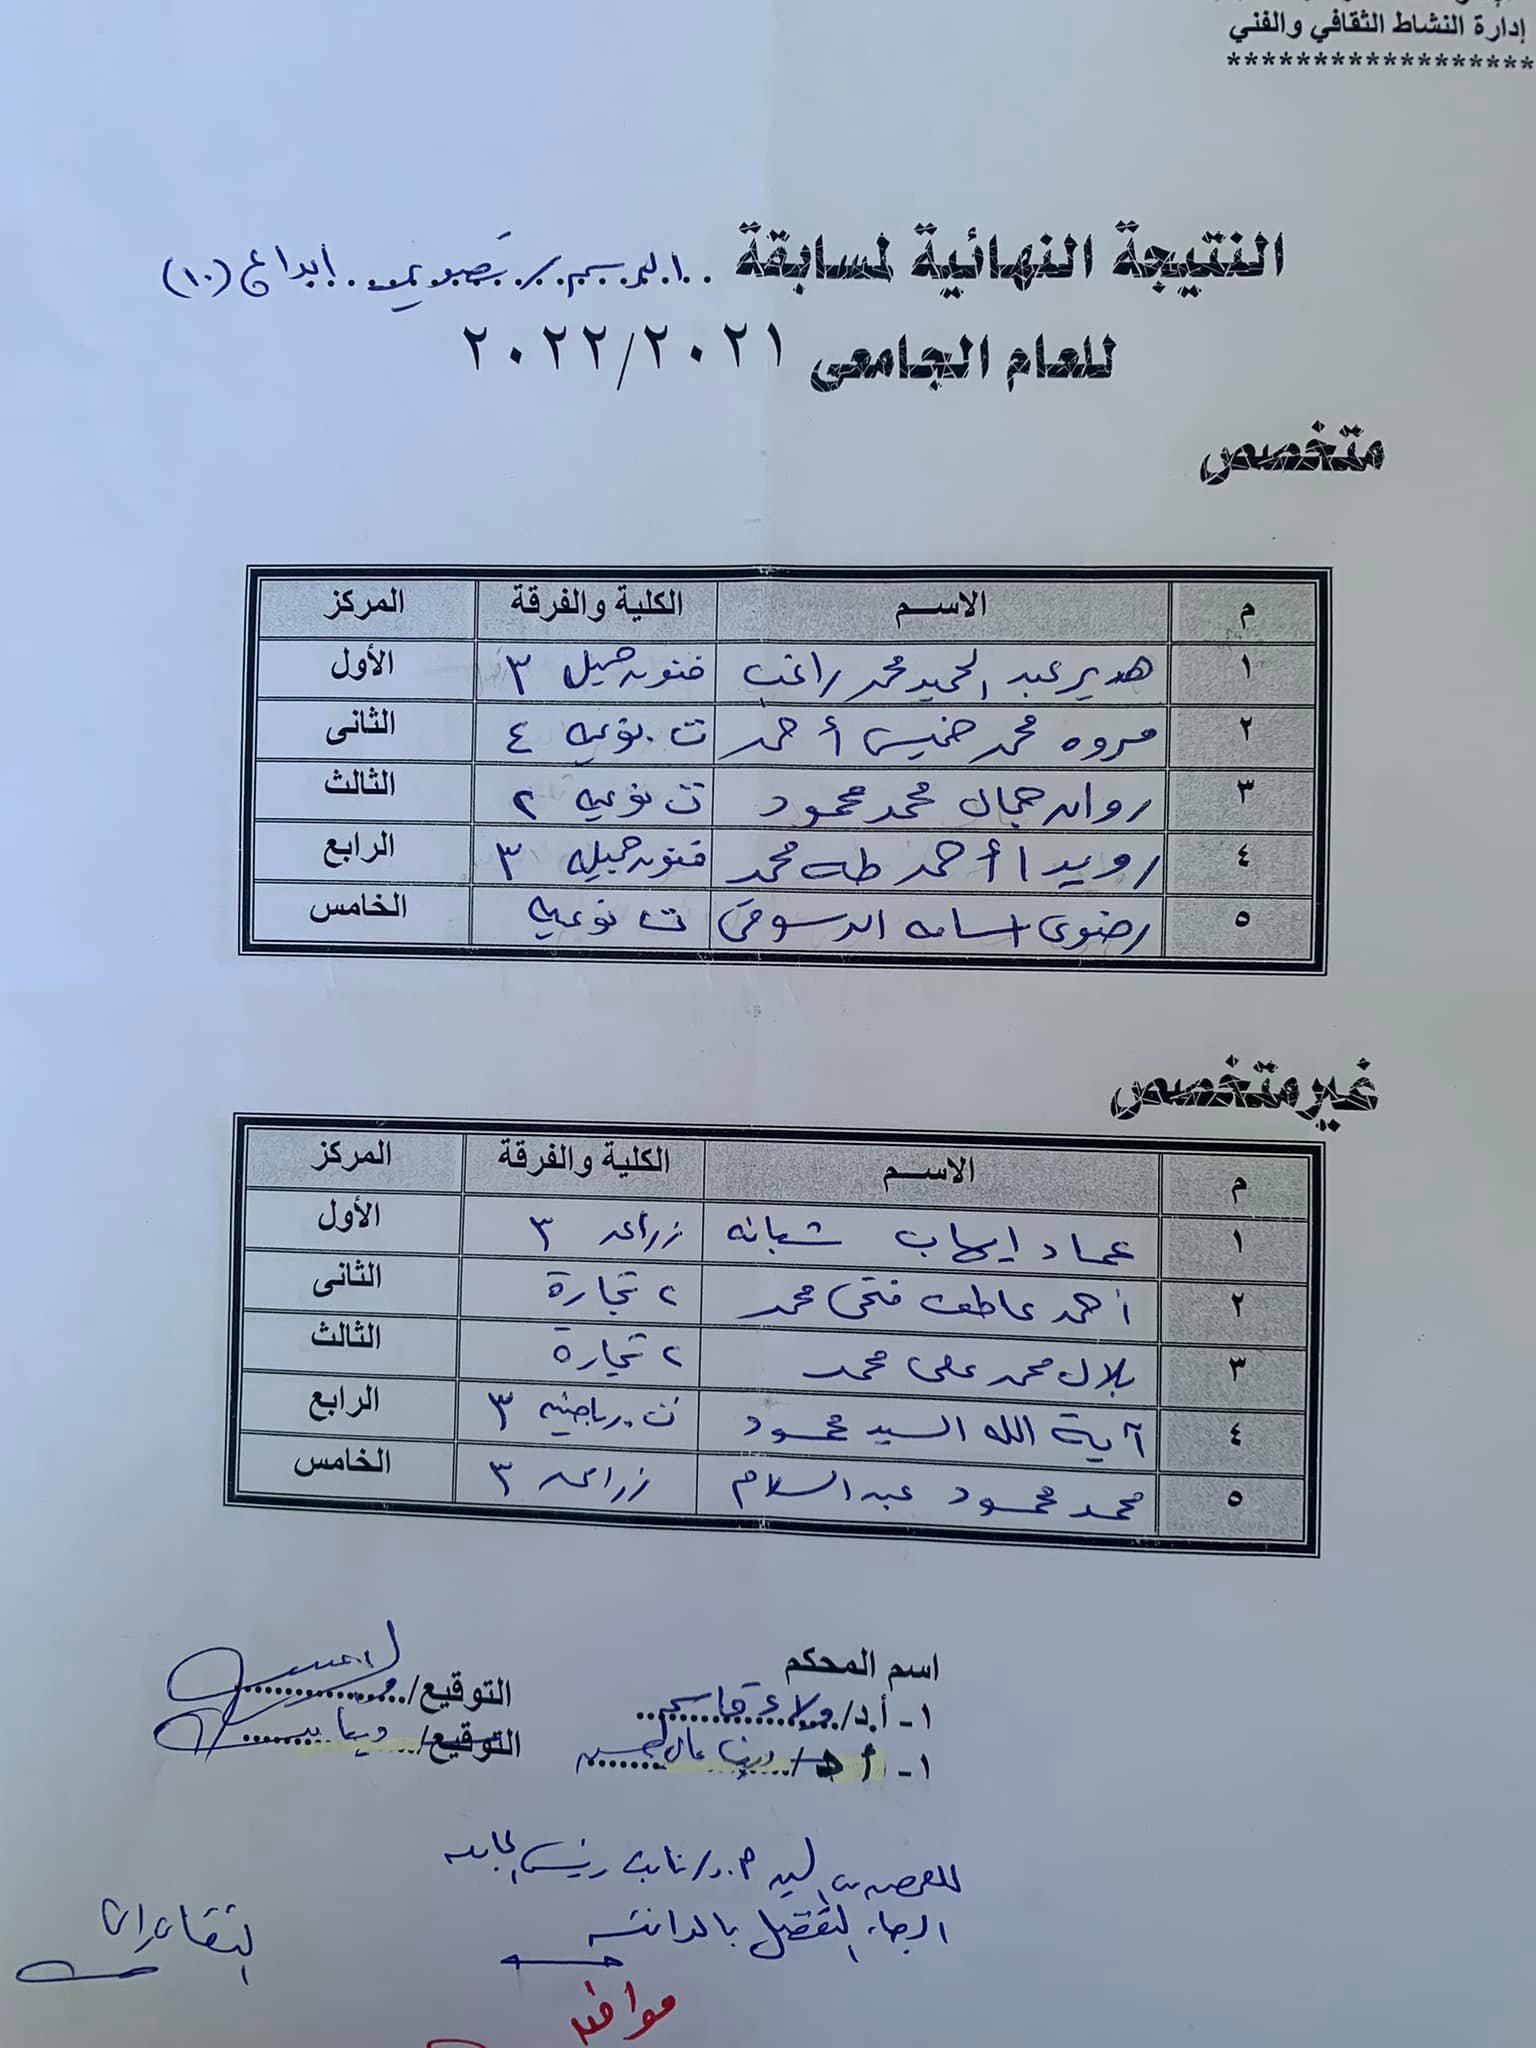 إدارة النشاط الثقافي والفني
******************
النتيجة النهائية لمسابقة ..الرسم./.تصوير..إبداع (١٠)
للعام الجامعى ٢٠٢٢/٢٠٢١
متخصص
م الاســم الكلية والفرقة المركز
١ هدير عبد الحميد محمد راغب فنون جميلة ٣ الأول
٢ مروه محمد خميس أحمد ت. نوعيه ٤ الثانى
٣ روان جمال محمد محمود ت نوعيه ٢ الثالث
٤ رويدا أحمد طه محمد فنون جميله ٣ الرابع
٥ رضوى اسامه الدسوقى ت نوعيه الخامس
غير متخصص
م الاســم الكلية والفرقة المركز
١ عماد إيهاب شبانه زراعه ٣ الأول
٢ أحمد عاطف فتحى محمد ٢ تجارة الثانى
٣ بلال محمد على محمد ٢ تجارة الثالث
٤ آية الله السيد محمود ت. رياضيه ٣ الرابع
٥ محمد محمود عبد السلام زراعه ٣ الخامس
اسم المحكم
١- أ.د/ ولاء قاسم التوقيع/
١- أ.د/ دينا عادل التوقيع/ دينا
للعرض على السيد أ.د/ نائب رئيس الجامعه
الرجاء التفضل بالموافقه
موافق